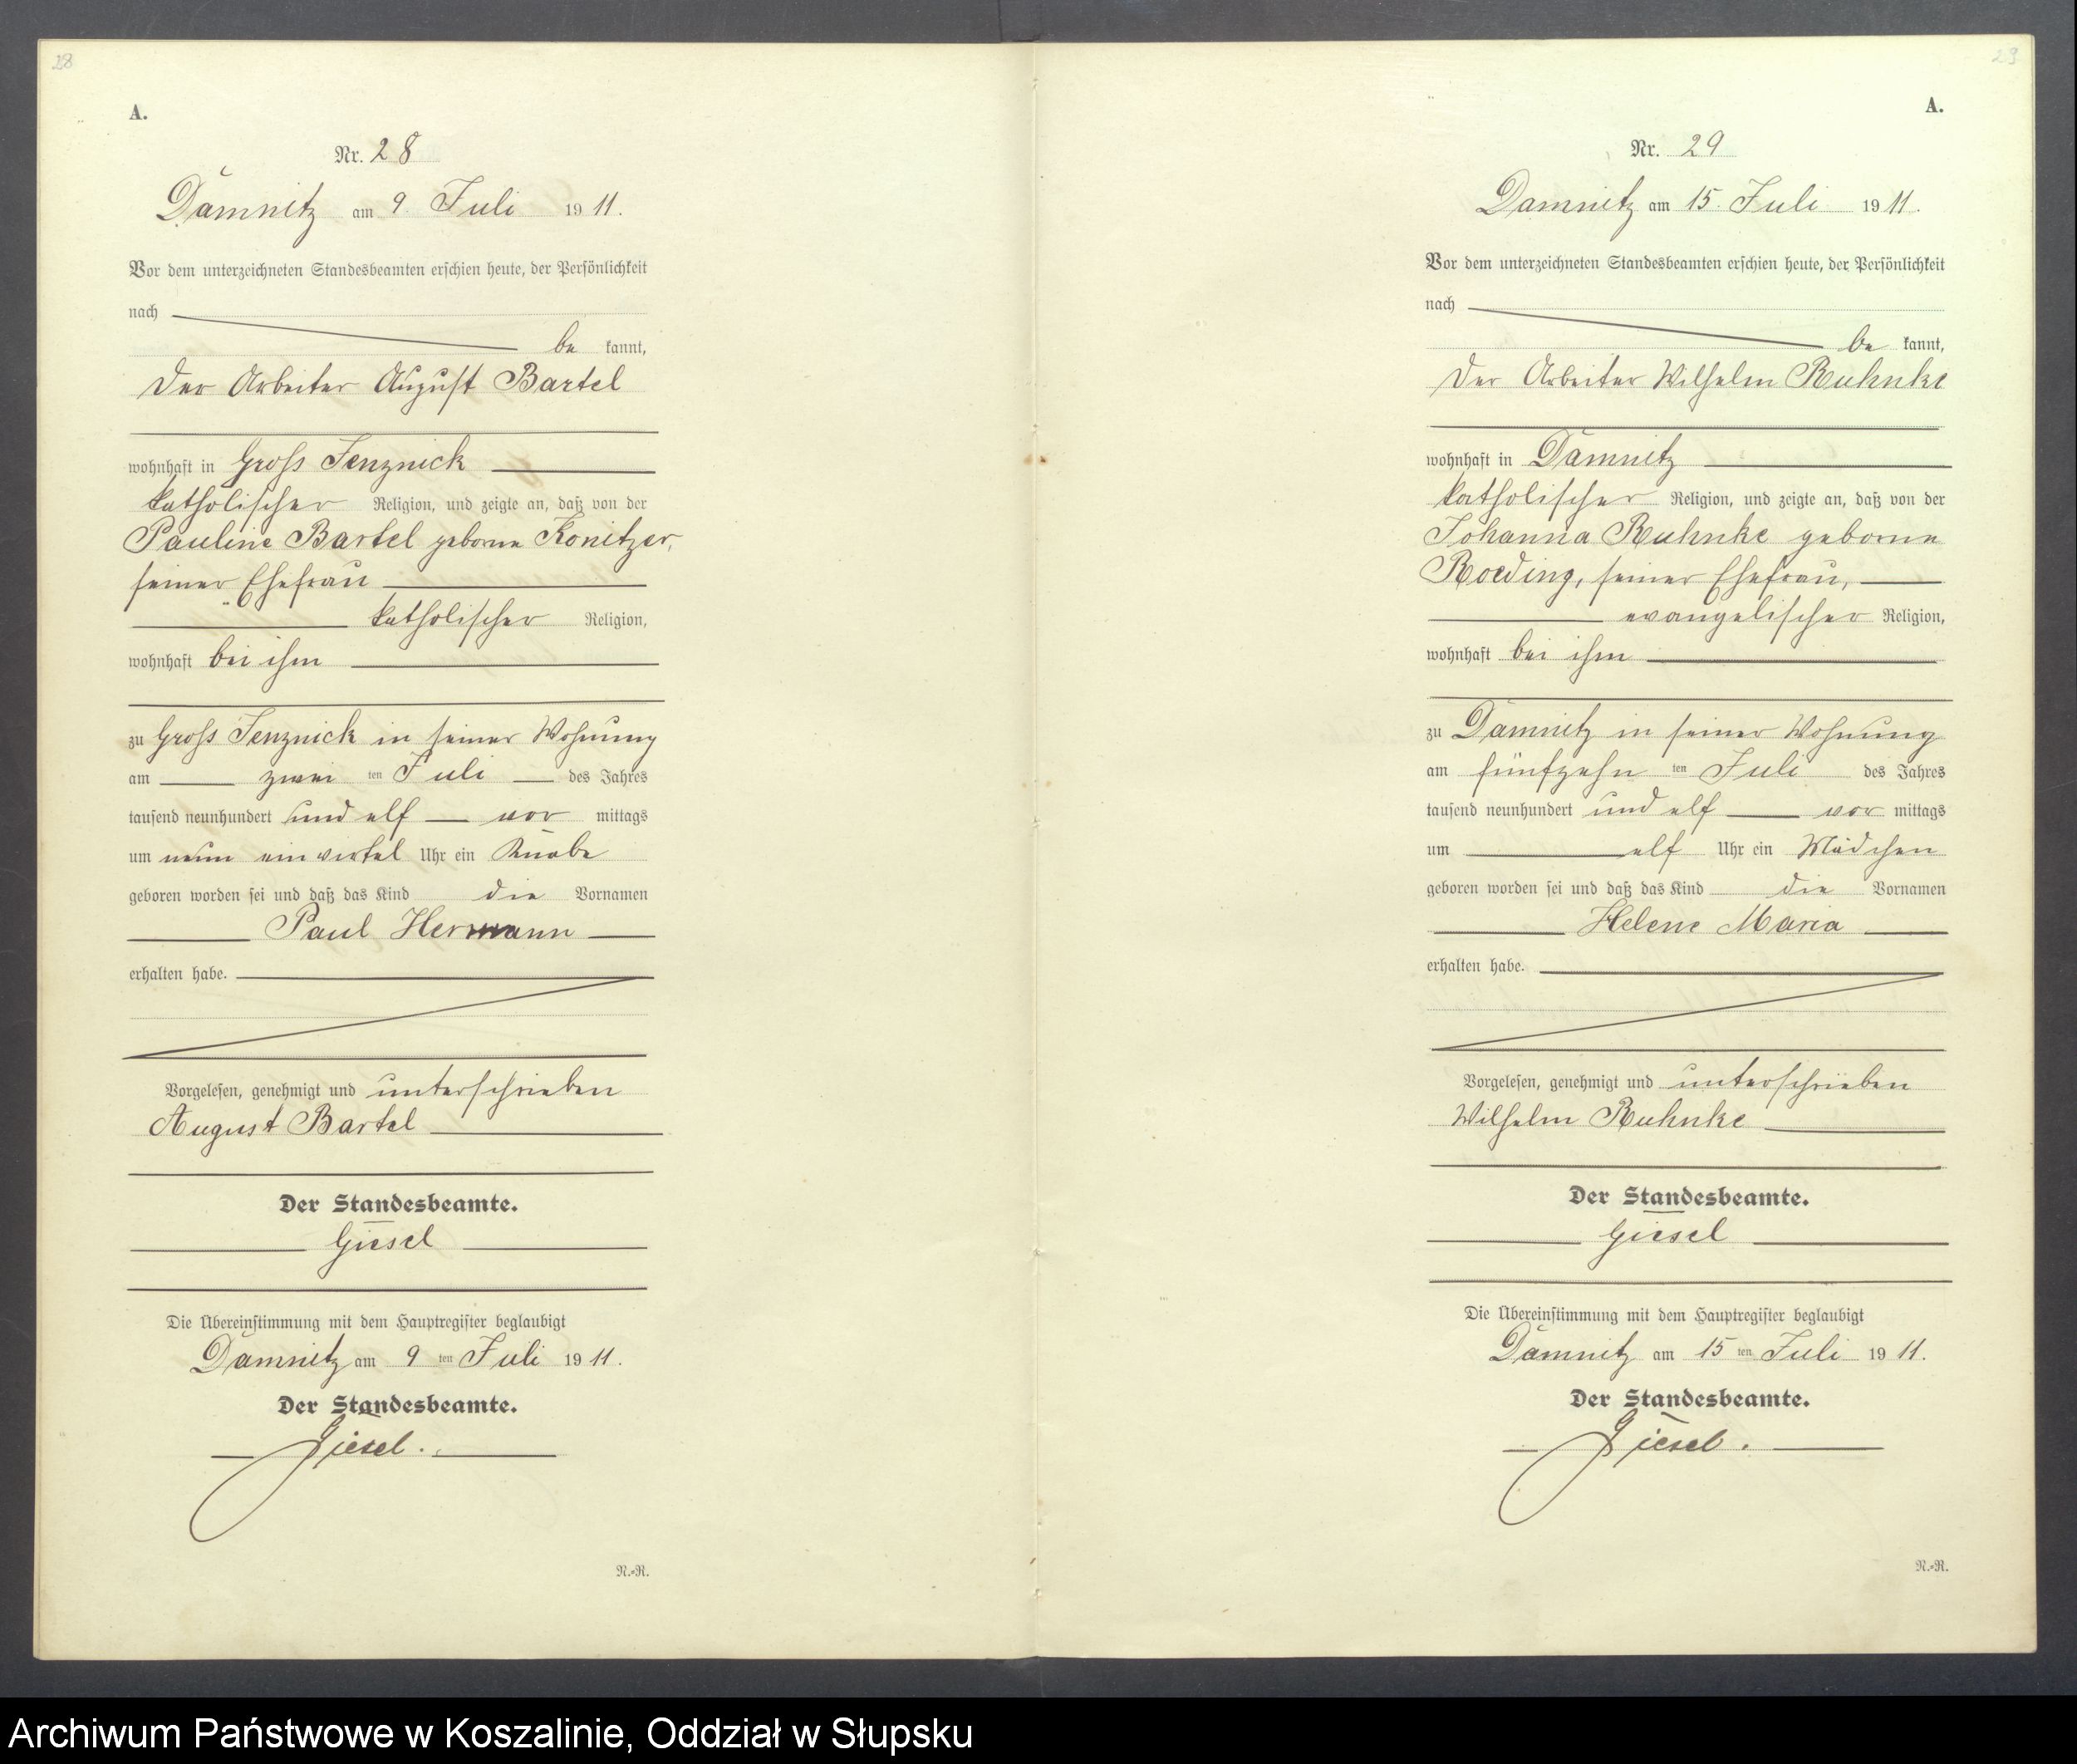 28
A.
Nr. 28
Damnitz am 9. Juli 1911.
Vor dem unterzeichneten Standesbeamten erschien heute, der Persönlichkeit
nach
be kannt,
der Arbeiter August Bartel
wohnhaft in Gross Jenznick
katholischer Religion, und zeigte an, daß von der
Pauline Bartel geborne Konitzer,
seiner Ehefrau
katholischer Religion,
wohnhaft bei ihm
zu Gross Jenznick in seiner Wohnung
am zwei ten Juli des Jahres
tausend neunhundert und elf vor mittags
um neun ein virtel Uhr ein Knabe
geboren worden sei und daß das Kind die Vornamen
Paul Hermann
erhalten habe.
Vorgelesen, genehmigt und unterschrieben
August Bartel
Der Standesbeamte.
Giesel
Die Übereinstimmung mit dem Hauptregister beglaubigt
Damnitz am 9 ten Juli 1911.
Der Standesbeamte.
Giesel.
N.-R.
29
A.
Nr. 29
Damnitz am 15. Juli 1911.
Vor dem unterzeichneten Standesbeamten erschien heute, der Persönlichkeit
nach
be kannt,
der Arbeiter Wilhelm Ruhnke
wohnhaft in Damnitz
katholischer Religion, und zeigte an, daß von der
Johanna Ruhnke geborne
Roeding, seiner Ehefrau,
evangelischer Religion,
wohnhaft bei ihm
zu Damnitz in seiner Wohnung
am fünfzehn ten Juli des Jahres
tausend neunhundert und elf vor mittags
um elf Uhr ein Mädchen
geboren worden sei und daß das Kind die Vornamen
Helene Maria
erhalten habe.
Vorgelesen, genehmigt und unterschrieben
Wilhelm Ruhnke
Der Standesbeamte.
Giesel
Die Übereinstimmung mit dem Hauptregister beglaubigt
Damnitz am 15 ten Juli 1911.
Der Standesbeamte.
Giesel.
N.-R.
Archiwum Państwowe w Koszalinie, Oddział w Słupsku